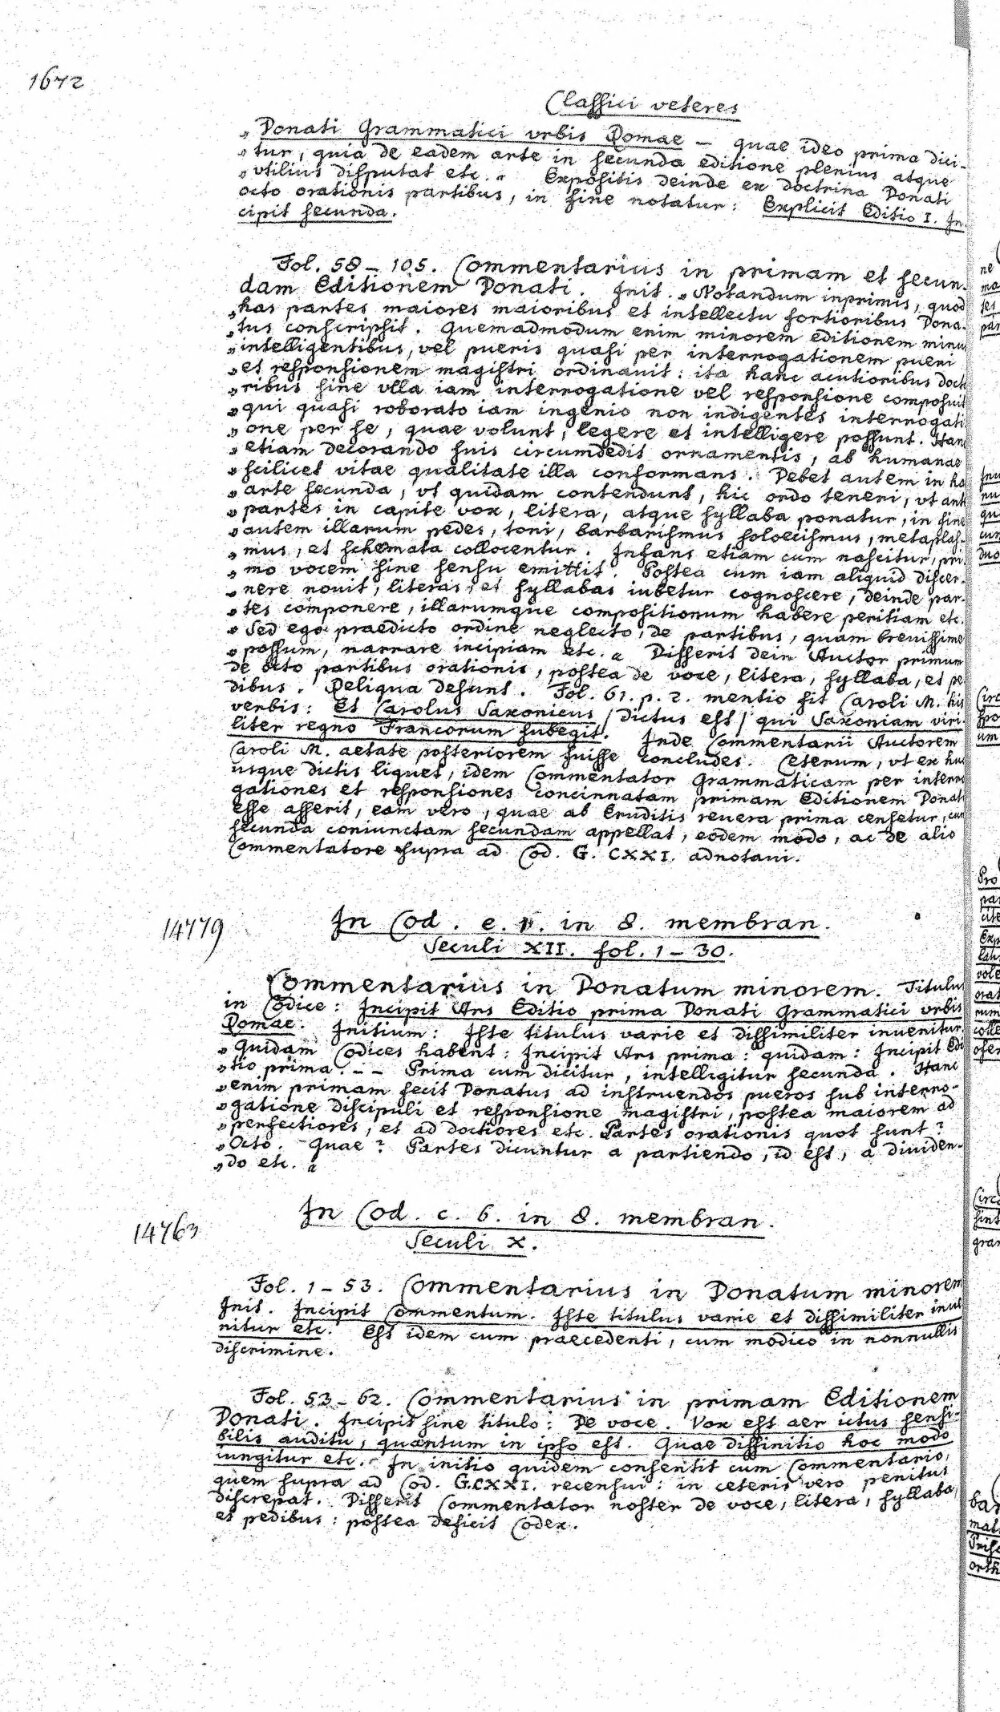 1672
Classici veteres
„Donati Grammatici vrbis Romae – quae ideo prima dici-
„tur, quia de eadem arte in secunda editione plenius atque
„vtilius disputat etc.“ Expositis deinde ex doctrina Donati
octo orationis partibus, in fine notatur: Explicit Editio I. In-
cipit secunda.
Fol. 58 – 105. Commentarius in primam et secun-
dam Editionem Donati. Init. „Notandum inprimis, quod
„has partes maiores maioribus et intellectu fortioribus Dona-
„tus conscripsit. Quemadmodum enim minorem editionem minus
„intelligentibus, vel pueris quasi per interrogationem pueri
„et responsionem magistri ordinauit: ita hanc acutioribus docto
„ribus sine vlla iam interrogatione vel responsione composuit
„qui quasi roborato iam ingenio non indigentes interrogati
„one per se, quae volunt, legere et intelligere possunt. Hanc
„etiam decorando suis circumdedit ornamentis, ab humanae
„scilicet vitae qualitate illa conformans. Debet autem in ha
„arte secunda, vt quidam contendunt, hic ordo teneri, vt ant
„partes in capite vox, litera, atque syllaba ponatur, in fine
„autem illarum pedes, toni, barbarismus soloecismus, metaplas-
„mus, et schemata collocentur. Infans etiam cum nascitur, pri
„mo vocem sine sensu emittit. Postea cum iam aliquid discer-
„nere nouit, literas et syllabas iubetur cognoscere, deinde par-
„tes componere, illarumque compositionum habere peritiam etc.
„Sed ego praedicto ordine neglecto, de partibus, quam breuissime
„possum, narrare incipiam etc.“ Disserit dein Auctor primum
de octo partibus orationis, postea de voce, litera, syllaba, et pe
dibus. Reliqua desunt. Fol. 61. p. 2. mentio fit Caroli M. his
verbis: Et Carolus Saxonicus (dictus est) qui Saxoniam viri-
liter regno Francorum subegit. Inde Commentarii Auctorem
Caroli M. aetate posteriorem fuisse concludes. Ceterum, vt ex huc
usque dictis liquet, idem Commentator Grammaticam per interro
gationes et responsiones concinnatam primam Editionem Donati
esse asserit, eam vero, quae ab Eruditis reuera prima censetur, cum
secunda coniunctam secundam appellat, eodem modo, ac de alio
Commentatore supra ad Cod. G. CXXI. adnotaui.
14779
In Cod. e. 1. in 8. membran.
Seculi XII. fol. 1 – 30.
Commentarius in Donatum minorem. Titulus
in Codice: Incipit Ars Editio prima Donati Grammatici vrbis
Romae. Initium: Iste titulus varie et dissimiliter inuenitur.
„Quidam Codices habent: Incipit Ars prima: quidam: Incipit Edi
„tio prima. – – Prima cum dicitur, intelligitur secunda. Hanc
„enim primam fecit Donatus ad instruendos pueros sub interro-
„gatione discipuli et responsione magistri, postea maiorem ad
„perfectiores, et ad doctiores etc. Partes orationis quot sunt?
„Octo. Quae? Partes dicuntur a partiendo, id est, a diuiden-
„do etc.“
14763
In Cod. c. 6. in 8. membran.
Seculi X.
Fol. 1 – 53. Commentarius in Donatum minorem
Init. Incipit Commentum. Iste titulus varie et dissimiliter inue
nitur etc. Est idem cum praecedenti, cum modico in nonnullis
discrimine.
Fol. 53 – 62. Commentarius in primam Editionem
Donati. Incipit sine titulo: De voce. Vox est aer ictus sensi-
bilis auditu, quantum in ipso est. Quae diffinitio hoc modo
iungitur etc. In initio quidem consentit cum Commentario,
quem supra ad Cod. G.CXXI. recensui: in ceteris vero penitus
discrepat. Disserit Commentator noster de voce, litera, syllaba,
et pedibus: postea deficit Codex.